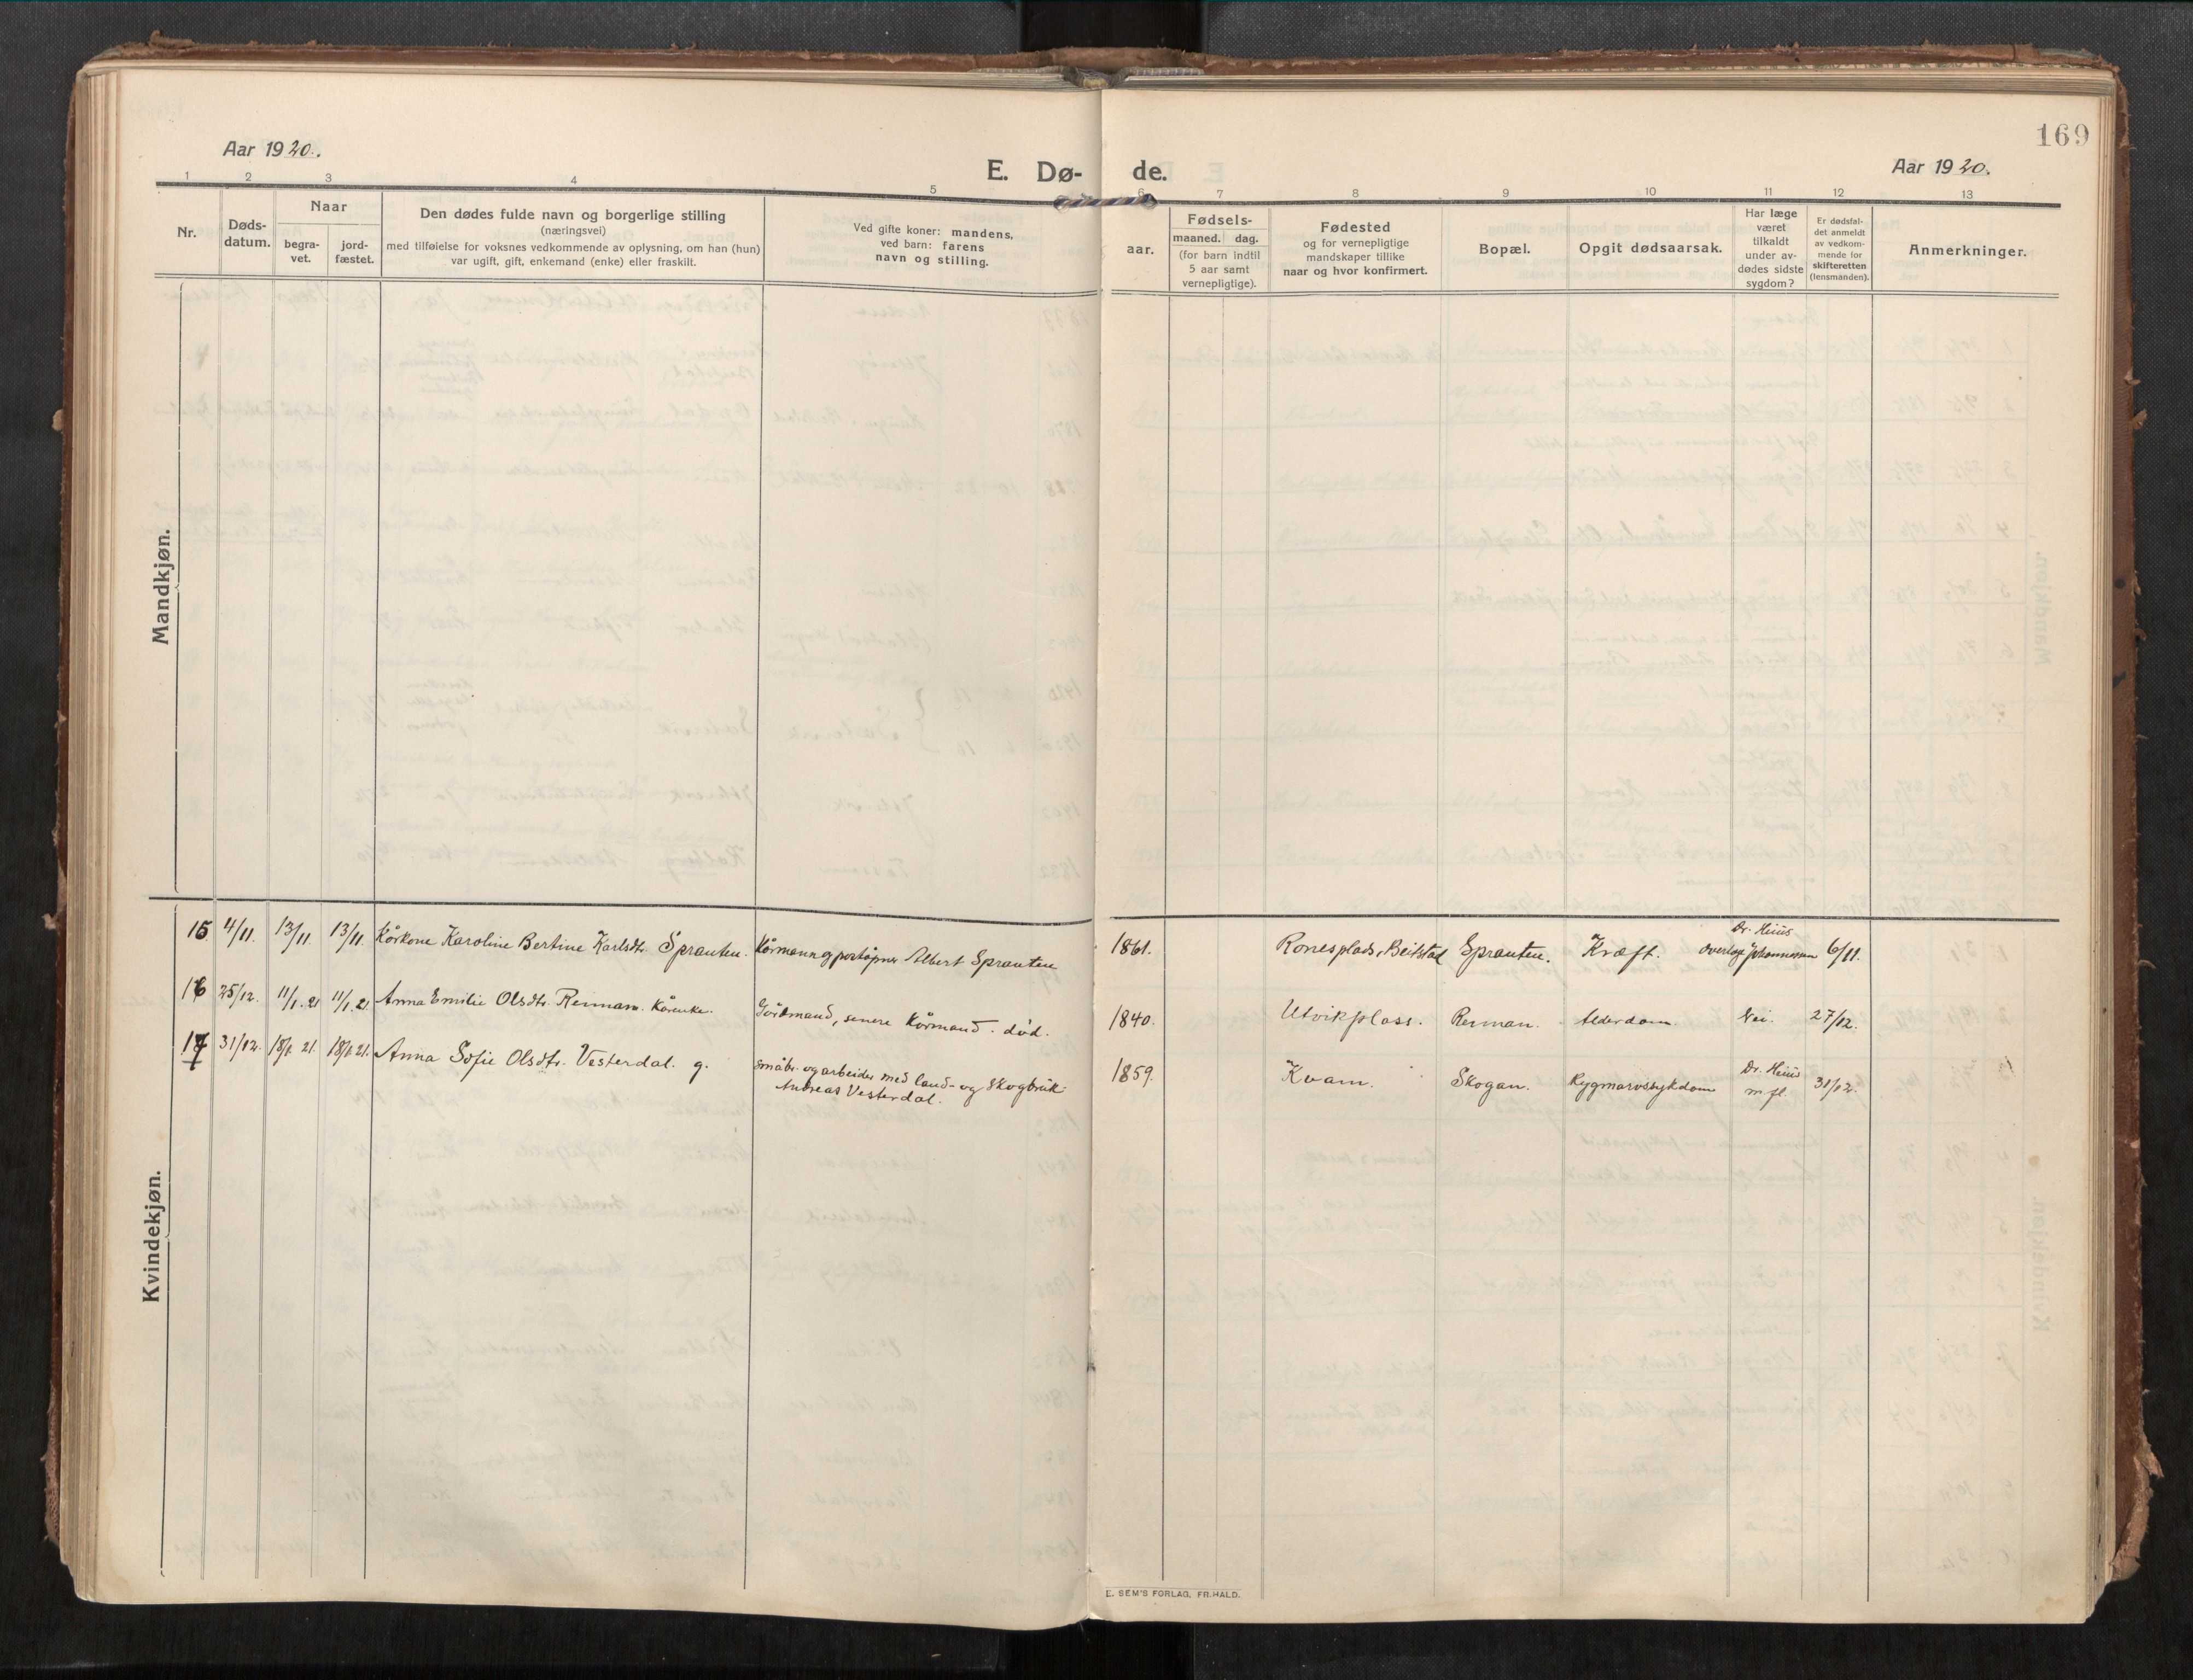 169
Aar 1920.
E. Dø- de.
Aar 1920.
1 2 3 4 5 6 7 8 9 10 11 12 13
Nr.
Døds-
datum.
Naar
begra-
vet.
jord-
fæstet.
Den dødes fulde navn og borgerlige stilling
(næringsvei)
med tilføielse for voksnes vedkommende av oplysning, om han (hun)
var ugift, gift, enkemand (enke) eller fraskilt.
Ved gifte koner: mandens,
ved barn: farens
navn og stilling.
aar.
Fødsels-
maaned. dag.
(for barn indtil
5 aar samt
vernepligtige).
Fødested
og for vernepligtige
mandskaper tillike
naar og hvor konfirmert.
Bopæl.
Opgit dødsaarsak.
Har læge
været
tilkaldt
under av-
dødes sidste
sygdom?
Er dødsfal-
det anmeldt
av vedkom-
mende for
skifteretten
(lensmanden).
Anmerkninger.
Mandkjøn.
Kvindekjøn.
15 4/11. 13/11. 13/11. Kårkone Karoline Bertine Karlsdtr. Sprauten. Kårmann og poståpner Albert Sprauten 1861. Ronesplads, Beitstad Sprauten. Kræft. Dr. Hiiis
Overlæge Johannessen 6/11.
16 25/12. 11/1. 21 11/1. 21 Anna Emilie Olsdtr. Remman. Kårenke. Gårdmand, senere Kårmand. død. 1840. Utvikplass. Remman. Alderdom. Nei. 27/12.
17 31/12. 18/1 21. 18/1 21. Anna Sofie Olsdtr. Vesterdal. g. Småbr. og arbeider med land- og Skogbruk
Andreas Vesterdal. 1859. Kvam. Skogan. Rygmarvssykdom Dr. Hiiis
m fl. 31/12.
E. SEM'S FORLAG, FR.HALD.